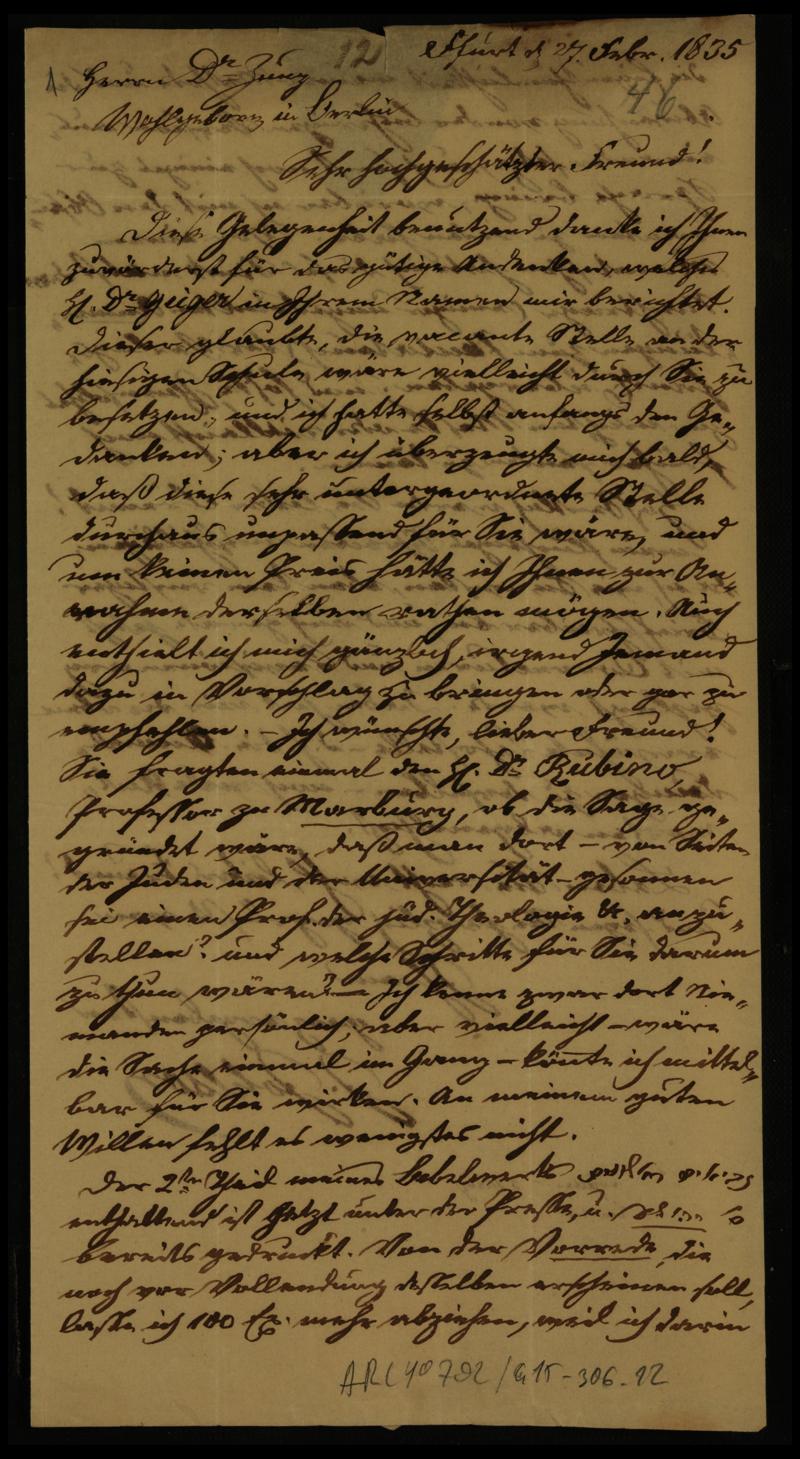 12
Ffurt d 27. Febr. 1835
1 Herrn Dr Zunz
46.
Wohlgeboren in Berlin
Sehr hochgeschätzter Freund!
Diese Gelegenheit benützend danke ich Ihnen
zuvörderst für das gütige Andenken, welches
H. Dr Geiger in Ihrem Namen mir berichtet.
Dieser glaubte, die vacante Stelle an der
hiesigen Schule wäre vielleicht durch Sie zu
besetzen, und ich hatte selbst anfangs den Ge-
danken; aber ich überzeugte mich bald,
daß diese sehr untergeordnete Stelle
durchaus unpassend für Sie wäre, und
um keinen Preis hätte ich Ihnen zur An-
nahme derselben rathen mögen. Auch
enthielt ich mich gänzlich, irgend Jemand
dazu in Vorschlag zu bringen oder gar zu
empfehlen. – Ich wünschte, lieber Freund!
Sie fragten einmal den H. Dr Rubino,
Professor zu Marburg, ob die Sage ge-
gründet wäre, daß man dort – von Seiten
der Juden und der Universität – gesonnen
sei einen Prof. der jüd. Theologie &. anzu-
stellen? und welche Schritte für Sie darum
zu thun wären? – Ich kenne zwar dort Nie-
manden persönlich; aber vielleicht – wäre
die Sache einmal im Gang – könnte ich mittel-
bar für Sie wirken. An meinem guten
Willen fehlt es wenigstes nicht.
Der 2te Theil meines Bibelwerks
enthaltend ist jetzt unter der Presse, u.
bereits gedruckt. Von der Vorrede, die
noch vor Vollendung desselben erscheinen soll,
lasse ich 100 Ex. mehr abziehen, weil ich darin
ARC 4° 792 / G 15 - 306. 12